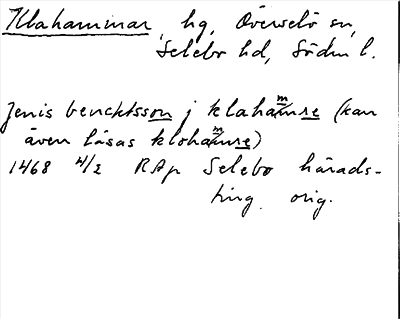 Klahammar, hg, Överselö sn,
Selebo hd, Södm l.
Jenis bencktsson j klahamre (kan
även läsas klohamre)
1468 4/2 RAp Selebo härads-
ting. orig.